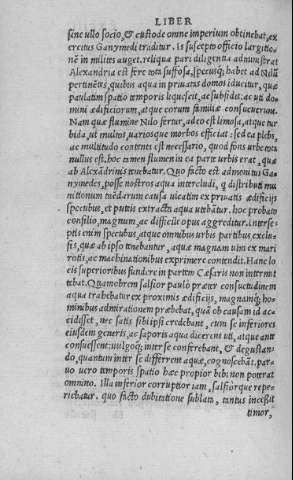 LIBER
sine ullo socio, & custode omne imperium obtinebat, ex
ercitus Ganymedi traditur. Is suscepto officio largitio-
nẽ in milites auget, reliqua pari diligentia administrat
Alexandria est fere tota suffosa, specusq́; habet ad Nilũ
pertinẽtes, quibus aqua in priuatas domos iducitur, quæ
paulatim spatio temporis liquescit, ac subsidit: ac uti domi
nì ædificiorum, atque eorum familiæ consueuerũt.
Nam quæ flumine Nilo fertur, adeo est limosa, atque tur
bida, ut multos, uariosque morbos efficiat: sed ea plebs,
ac multitudo contenta est necessario, quod fons urbe tota
nullus est. hoc tamen flumen in ea parte urbis erat, quæ
ab Alexãdrinis tenebatur. Quo facto est admonitus Ga-
nymedes, posse nostros aqua intercludi, q distributi mu
nitionum tuẽdarum causa uicatim ex priuatis ædificijs
specubus, et puteis extracta aqua utebãtur. hoc probato
consilio, magnum, ac difficile opus aggreditur. interse-
ptis enim specubus, atque omnibus urbis partibus exclu-
sis, quæ ab ipso tenebantur, aquæ magnam uim ex mari
rotis, ac machinationibus exprimere contendit. Hanc lo
cis superioribus fundere in partem Cæsaris non intermit
tebat. Quamobrem salsior paulò præter consuetudinem
aqua trahebatur ex proximis ædificijs, magnamq́; ho-
minibus admirationem præbebat, quã ob causam id ac-
cidisset, nec satis sibi ipsi credebant, cum se inferiores
eiusdem generis, ac saporis aqua dicerent uti, atque ante
consuessent: uulgoq́; inter se conferebant, & degustan-
do, quantum inter se differrent aquæ, cognoscebãt. par-
uo uero temporis spatio hæc propior bibi non poterat
omnino. Illa inferior corruptior iam, salsiórque repe-
riebatur. quo facto dubitatione sublata, tantus incessit
timor,